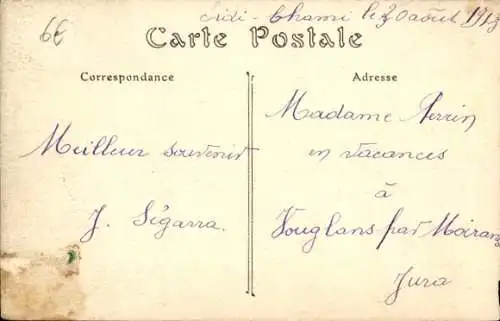 Sidi-Chami le 20 août 1913
6€
Carte Postale
Correspondance
Adresse
Meilleur souvenir
J. Ségarra.
Madame Perrin
en vacances
à
Vouglans par Moirans
Jura